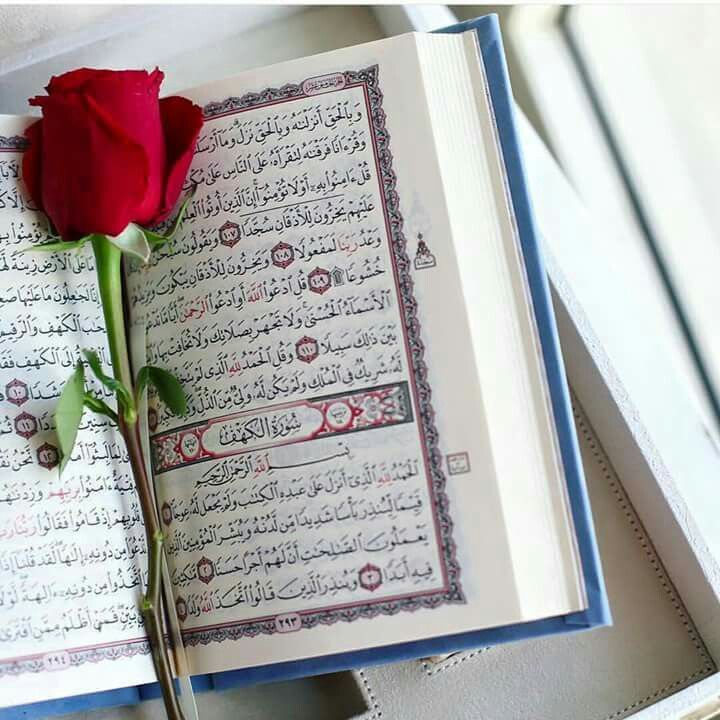 وَبِالْحَقِّ أَنزَلْنَٰهُ وَبِالْحَقِّ نَزَلَ وَمَا أَرْسَلْ
وَقُرْءَانًا فَرَقْنَٰهُ لِتَقْرَأَهُ عَلَى النَّاسِ عَلَىٰ
قُلْ ءَامِنُوا بِهِ أَوْ لَا تُؤْمِنُوا إِنَّ الَّذِينَ أُوتُوا
عَلَيْهِمْ يَخِرُّونَ لِلْأَذْقَانِ سُجَّدًا ١٠٧ وَيَقُولُونَ
وَعْدُ رَبِّنَا لَمَفْعُولًا ١٠٨ وَيَخِرُّونَ لِلْأَذْقَانِ يَبْكُونَ وَيَزِيدُهُمْ
خُشُوعًا ۩ ١٠٩ قُلِ ادْعُوا اللَّهَ أَوِ ادْعُوا الرَّحْمَٰنَ أَيًّا مَّا تَدْعُوا
الْأَسْمَاءُ الْحُسْنَىٰ وَلَا تَجْهَرْ بِصَلَاتِكَ وَلَا تُخَافِتْ بِهَا
بَيْنَ ذَٰلِكَ سَبِيلًا ١١٠ وَقُلِ الْحَمْدُ لِلَّهِ الَّذِي لَمْ
لَّهُ شَرِيكٌ فِي الْمُلْكِ وَلَمْ يَكُن لَّهُ وَلِيٌّ مِّنَ الذُّلِّ وَ
سُورَةُ الْكَهْفِ
بِسْمِ اللَّهِ الرَّحْمَٰنِ الرَّحِيمِ
الْحَمْدُ لِلَّهِ الَّذِي أَنزَلَ عَلَىٰ عَبْدِهِ الْكِتَٰبَ وَلَمْ يَجْعَل لَّهُ عِوَجًا ١
قَيِّمًا لِّيُنذِرَ بَأْسًا شَدِيدًا مِّن لَّدُنْهُ وَيُبَشِّرَ الْمُؤْمِنِينَ الَّذِينَ
يَعْمَلُونَ الصَّٰلِحَٰتِ أَنَّ لَهُمْ أَجْرًا حَسَنًا ٢ مَّٰكِثِينَ
فِيهِ أَبَدًا ٣ وَيُنذِرَ الَّذِينَ قَالُوا اتَّخَذَ اللَّهُ وَلَدًا ٤
٢٩٣
مَا عَلَى الْأَرْضِ زِينَةً
وَإِنَّا لَجَٰعِلُونَ مَا عَلَيْهَا صَعِ
الْكَهْفِ وَالرَّقِيمِ
إِلَى الْكَهْفِ فَقَا
١٠
١١
١٢ نَحْنُ
ءَامَنُوا بِرَبِّهِمْ وَزِدْنَٰ
قُلُوبِهِمْ إِذْ قَامُوا فَقَالُوا رَبُّنَا رَ
مِن دُونِهِ إِلَٰهًا لَّقَدْ قُلْنَا إِذًا
اتَّخَذُوا مِن دُونِهِ ءَالِهَةً لَّوْلَا
بَيِّنٍ فَمَنْ أَظْلَمُ مِمَّنِ افْتَرَىٰ
٢٩٤